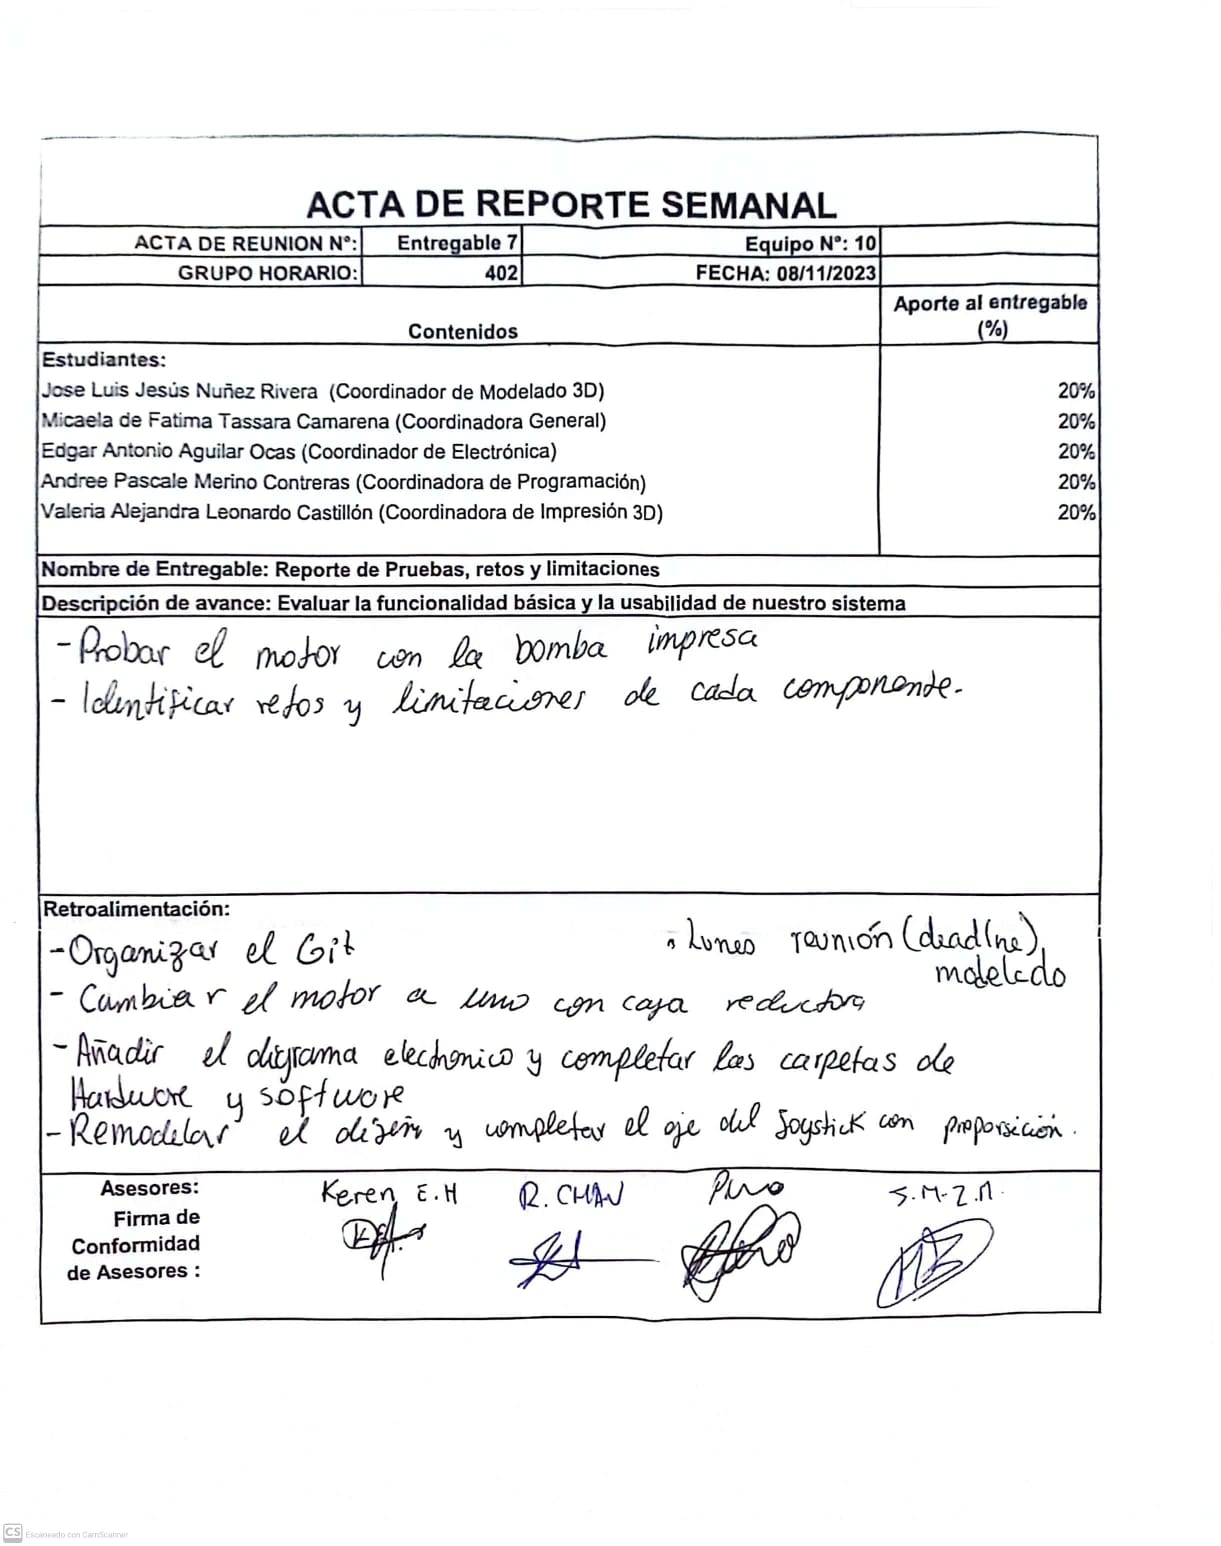 ACTA DE REPORTE SEMANAL
ACTA DE REUNION N°: Entregable 7 Equipo N°: 10
GRUPO HORARIO: 402 FECHA: 08/11/2023
Contenidos Aporte al entregable (%)
Estudiantes:
Jose Luis Jesús Nuñez Rivera (Coordinador de Modelado 3D) 20%
Micaela de Fatima Tassara Camarena (Coordinadora General) 20%
Edgar Antonio Aguilar Ocas (Coordinador de Electrónica) 20%
Andree Pascale Merino Contreras (Coordinadora de Programación) 20%
Valeria Alejandra Leonardo Castillón (Coordinadora de Impresión 3D) 20%
Nombre de Entregable: Reporte de Pruebas, retos y limitaciones
Descripción de avance: Evaluar la funcionalidad básica y la usabilidad de nuestro sistema
- Probar el motor con la bomba impresa
- Identificar retos y limitaciones de cada componente.
Retroalimentación:
- Organizar el Git
• Lunes reunión (deadline),
modelado
- Cambiar el motor a uno con caja reductora
- Añadir el digrama electronico y completar las carpetas de
Hardware y software
- Remodelar el diseño y completar el eje del Joystick con proporsición.
Asesores: Keren E.H R. CHAN S.M-Z.M.
Firma de
Conformidad
de Asesores :
CS Escaneado con CamScanner